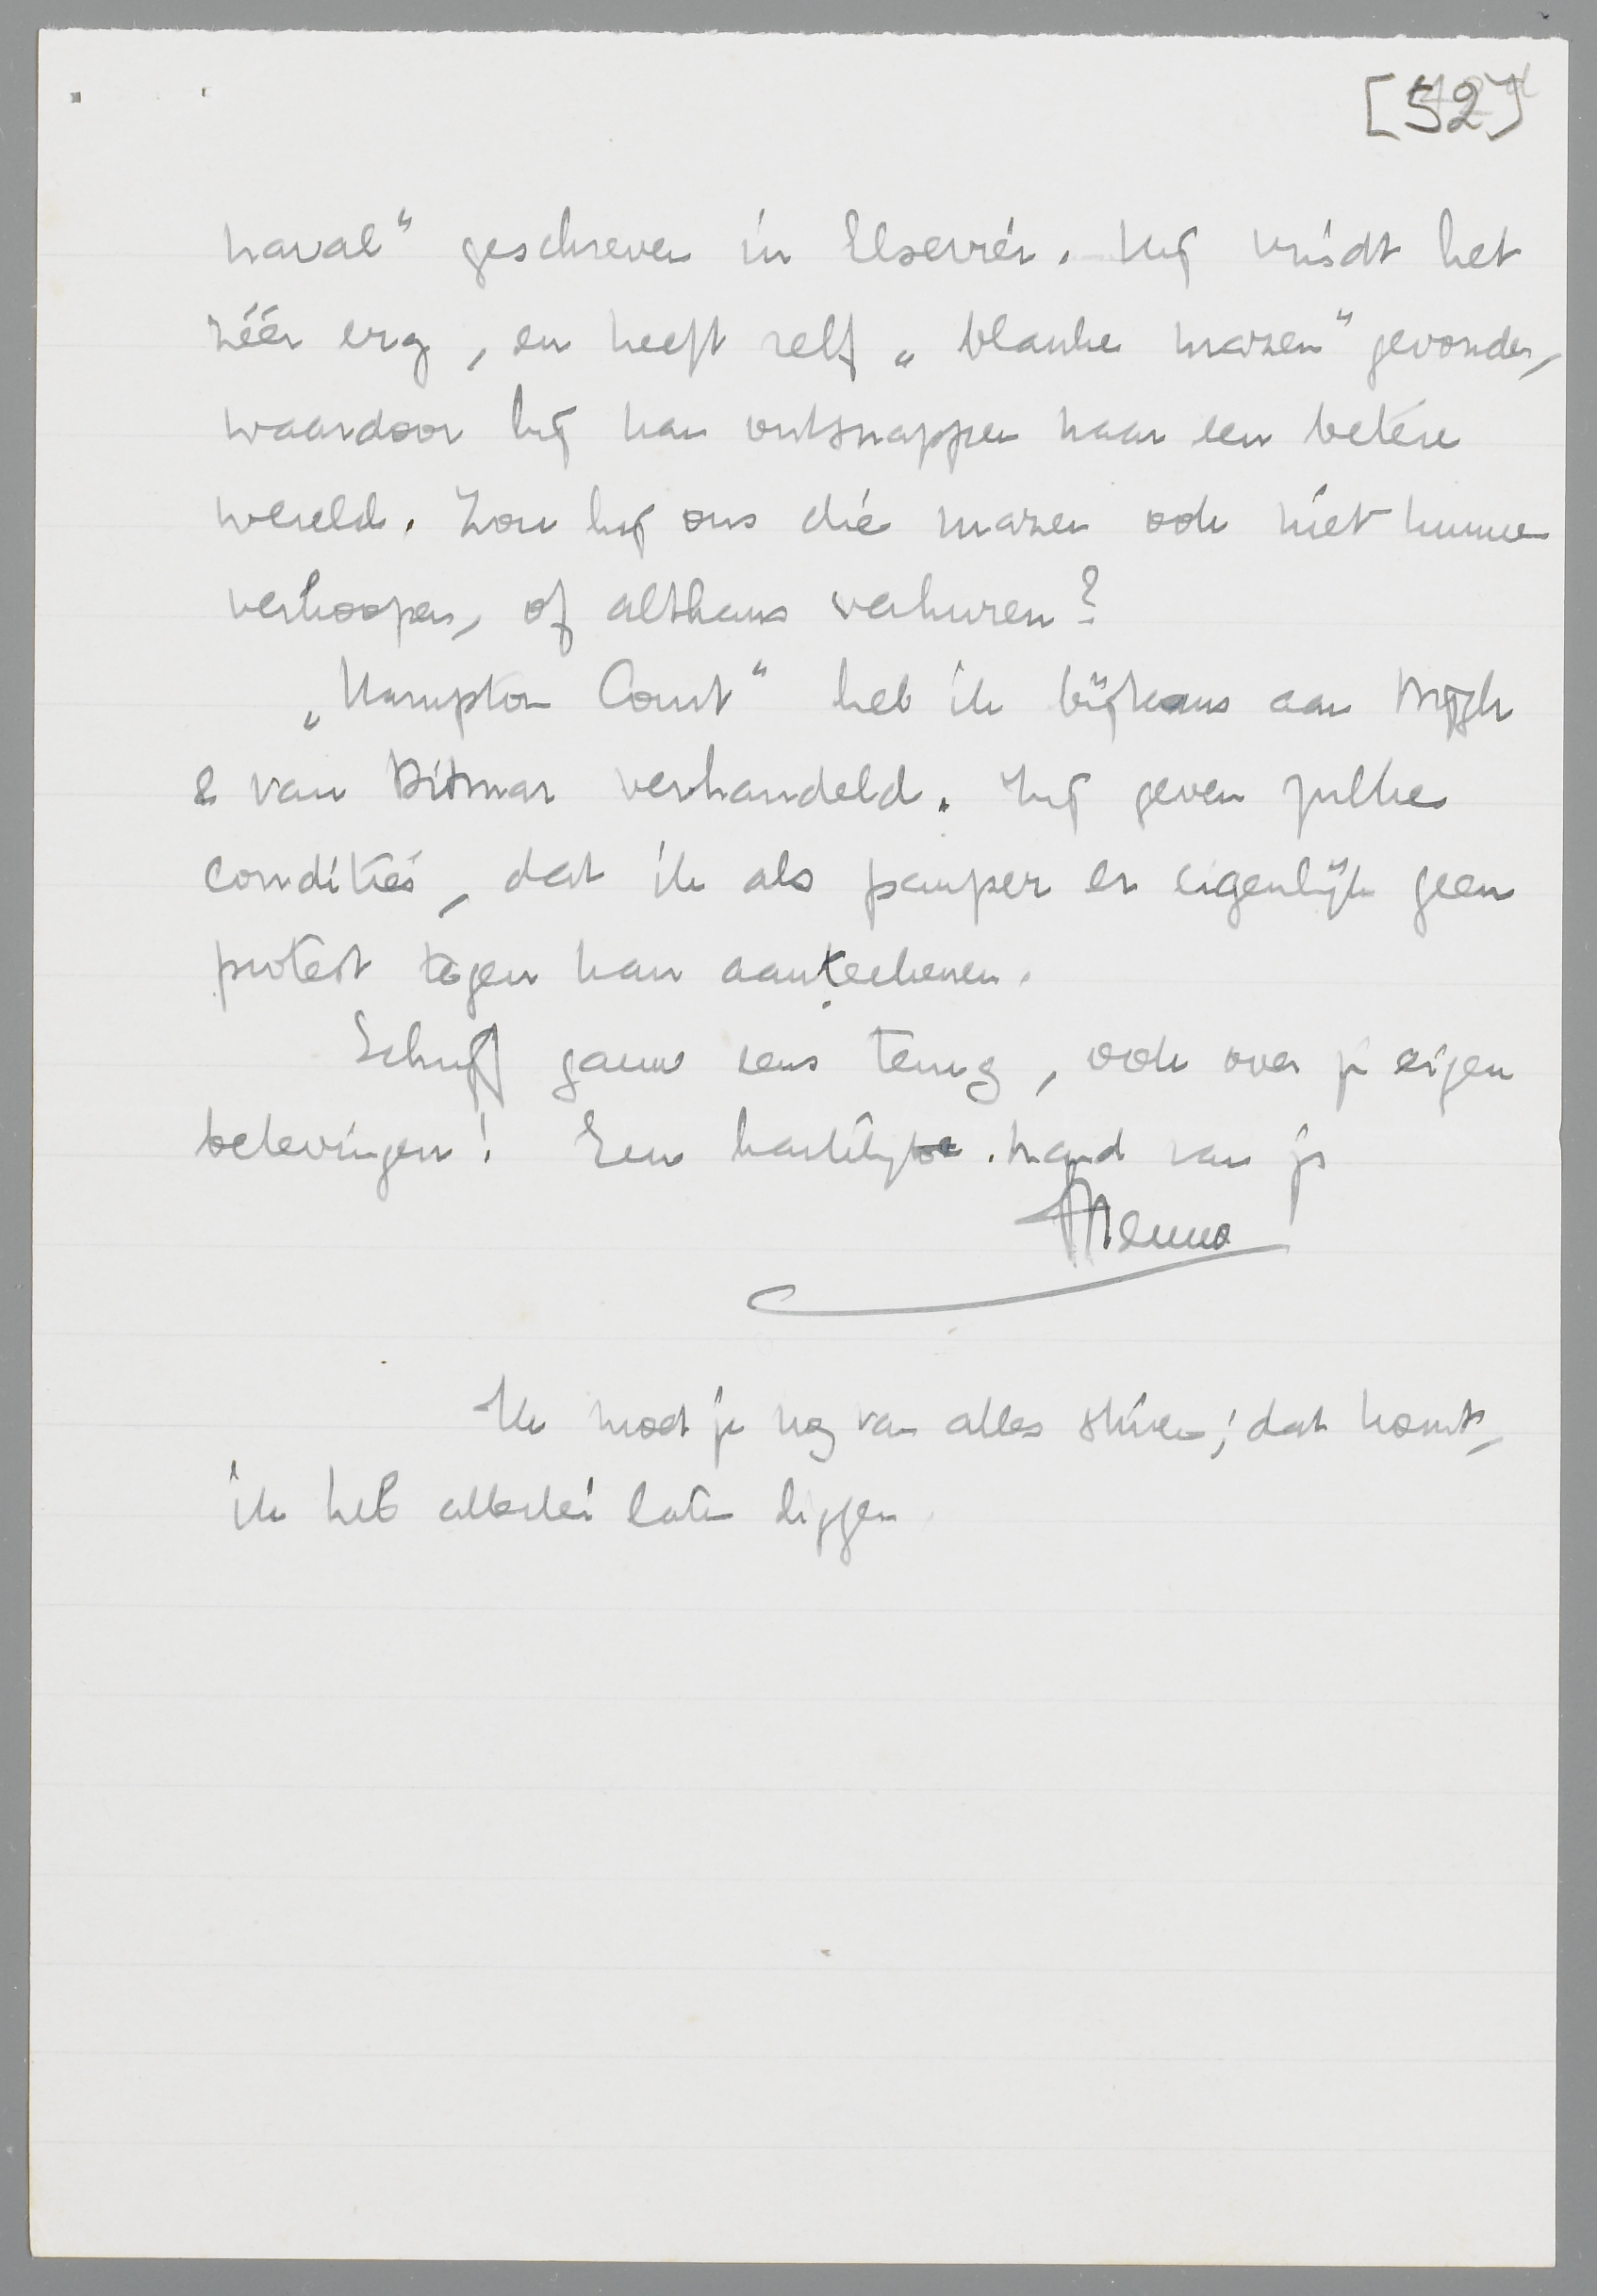 [52]
naval" geschreven in Elsevier. Hij vindt het
zéér erg, en heeft zelf „blanke mazen" gevonden,
waardoor hij kan ontsnappen naar een betere
wereld. Zou hij ons die mazen ook niet kunnen
verkoopen, of althans verhuren?
„Hampton Court" heb ik bijkans aan Nijgh
& van Ditmar verhandeld. Zij geven zulke
condities, dat ik als pauper er eigenlijk geen
protest tegen kan aanteekenen.
Schrijf gauw eens terug, ook over je eigen
belevingen! Een hartelijke hand van je
Menno
Ik moet je nog van alles sturen; dat komt,
ik heb allerlei laten liggen